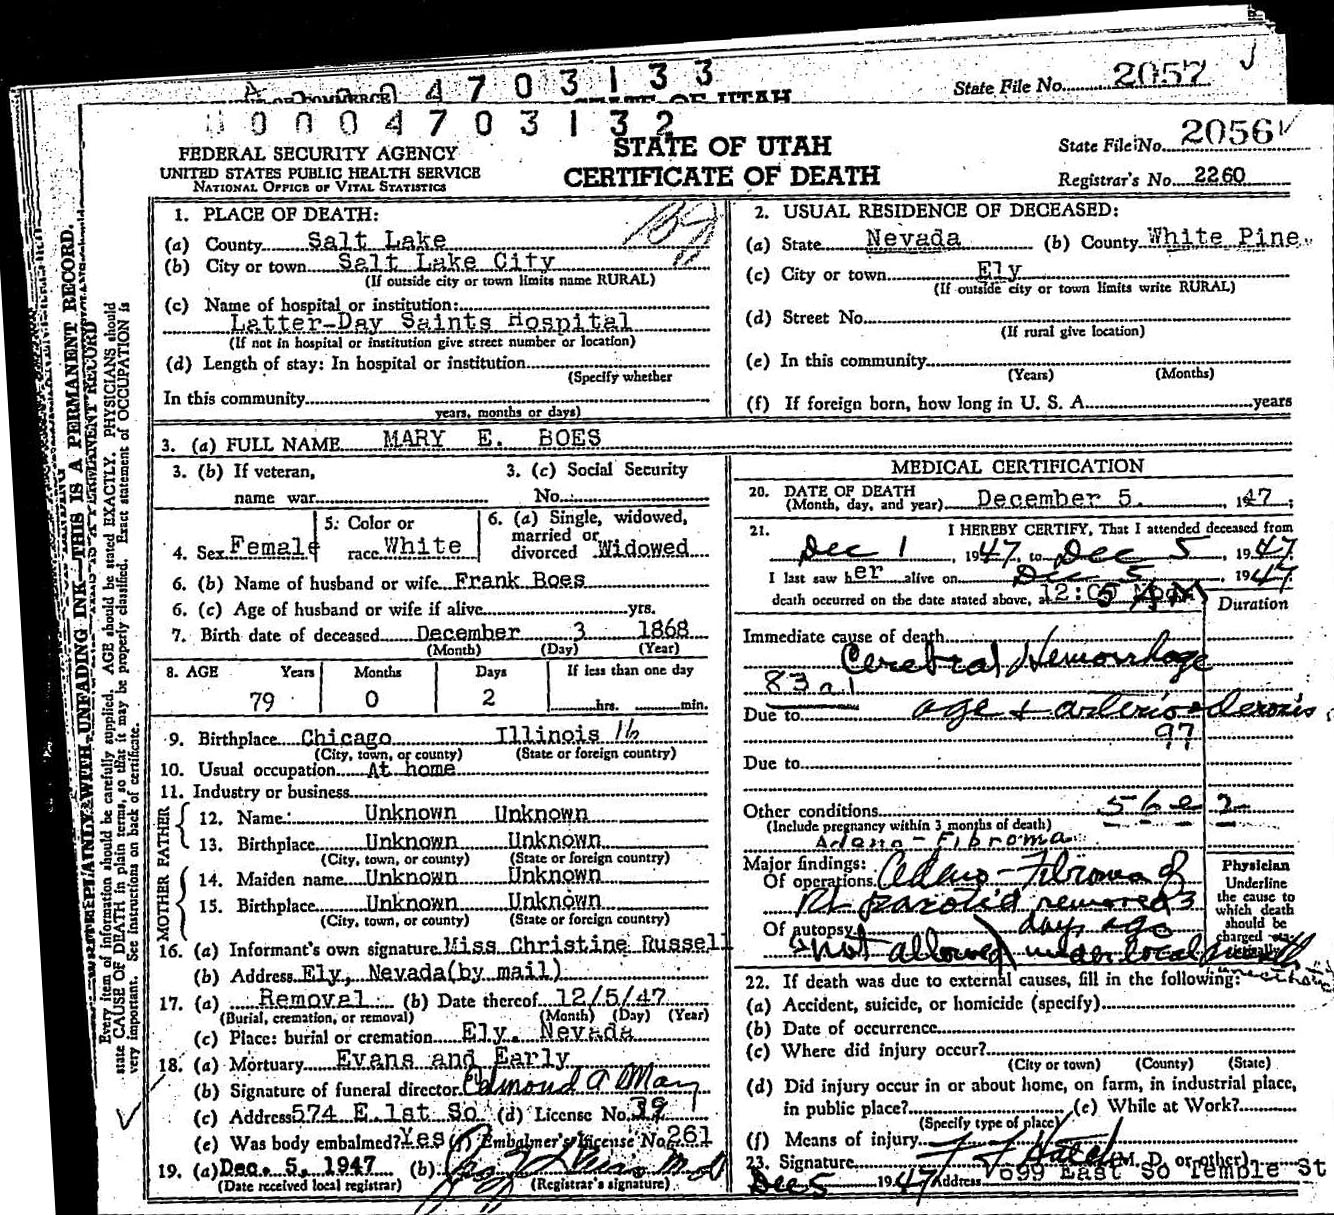 4703133
STATE OF UTAH
State File No. 2057
0004703132
FEDERAL SECURITY AGENCY
UNITED STATES PUBLIC HEALTH SERVICE
NATIONAL OFFICE OF VITAL STATISTICS
STATE OF UTAH
CERTIFICATE OF DEATH
State File No. 2056
Registrar's No. 2260
WRITE PLAINLY WITH UNFADING INK—THIS IS A PERMANENT RECORD.
Every item of information should be carefully supplied. AGE should be stated EXACTLY. PHYSICIANS should
state CAUSE OF DEATH in plain terms, so that it may be properly classified. Exact statement of OCCUPATION is
very important. See instructions on back of certificate.
1. PLACE OF DEATH:
(a) County Salt Lake
(b) City or town Salt Lake City
(If outside city or town limits name RURAL)
(c) Name of hospital or institution:
Latter-Day Saints Hospital
(If not in hospital or institution give street number or location)
(d) Length of stay: In hospital or institution
(Specify whether
In this community
years, months or days)
2. USUAL RESIDENCE OF DECEASED:
(a) State Nevada (b) County White Pine
(c) City or town Ely
(If outside city or town limits write RURAL)
(d) Street No.
(If rural give location)
(e) In this community
(Years) (Months)
(f) If foreign born, how long in U. S. A. years
3. (a) FULL NAME MARY E. BOES
3. (b) If veteran, 3. (c) Social Security
name war No.
4. Sex Female 5. Color or race White 6. (a) Single, widowed, married or divorced Widowed
6. (b) Name of husband or wife Frank Boes
6. (c) Age of husband or wife if alive yrs.
7. Birth date of deceased December 3 1868
(Month) (Day) (Year)
8. AGE Years Months Days If less than one day
79 0 2 hrs. min.
9. Birthplace Chicago Illinois 16
(City, town, or county) (State or foreign country)
10. Usual occupation At home
11. Industry or business
FATHER
12. Name: Unknown Unknown
13. Birthplace Unknown Unknown
(City, town, or county) (State or foreign country)
MOTHER
14. Maiden name Unknown Unknown
15. Birthplace Unknown Unknown
(City, town, or county) (State or foreign country)
16. (a) Informant's own signature Miss Christine Russell
(b) Address Ely, Nevada(by mail)
17. (a) Removal (b) Date thereof 12/5/47
(Burial, cremation, or removal) (Month) (Day) (Year)
(c) Place: burial or cremation Ely, Nevada
18. (a) Mortuary Evans and Early
(b) Signature of funeral director Edmond A May
(c) Address 574 E. 1st So (d) License No. 39
(e) Was body embalmed? Yes (f) Embalmer's License No. 261
19. (a) Dec. 5, 1947 (b)
(Date received local registrar) (Registrar's signature)
MEDICAL CERTIFICATION
20. DATE OF DEATH
(Month, day, and year) December 5. , 1947;
21. I HEREBY CERTIFY, That I attended deceased from
Dec 1 , 1947, to Dec 5 , 1947.
I last saw her alive on Dec 5 , 1947
death occurred on the date stated above, at 12:05 AM
Duration
Immediate cause of death
Cerebral Hemorrhage
83a1
Due to age + arteriosclerosis
97
Due to
Other conditions 56e2
(Include pregnancy within 3 months of death)
Adeno-Fibroma
Major findings:
Of operations Adeno-Fibroma of
Rt parotid removed 3
days ago
Of autopsy
not allowed under local
Physician
Underline
the cause to
which death
should be
charged statistically
22. If death was due to external causes, fill in the following:
(a) Accident, suicide, or homicide (specify)
(b) Date of occurrence
(c) Where did injury occur?
(City or town) (County) (State)
(d) Did injury occur in or about home, on farm, in industrial place,
in public place? (e) While at Work?
(Specify type of place)
(f) Means of injury
23. Signature F F Hatch (M. D. or other)
Dec 5 1947 Address 699 East So Temple St